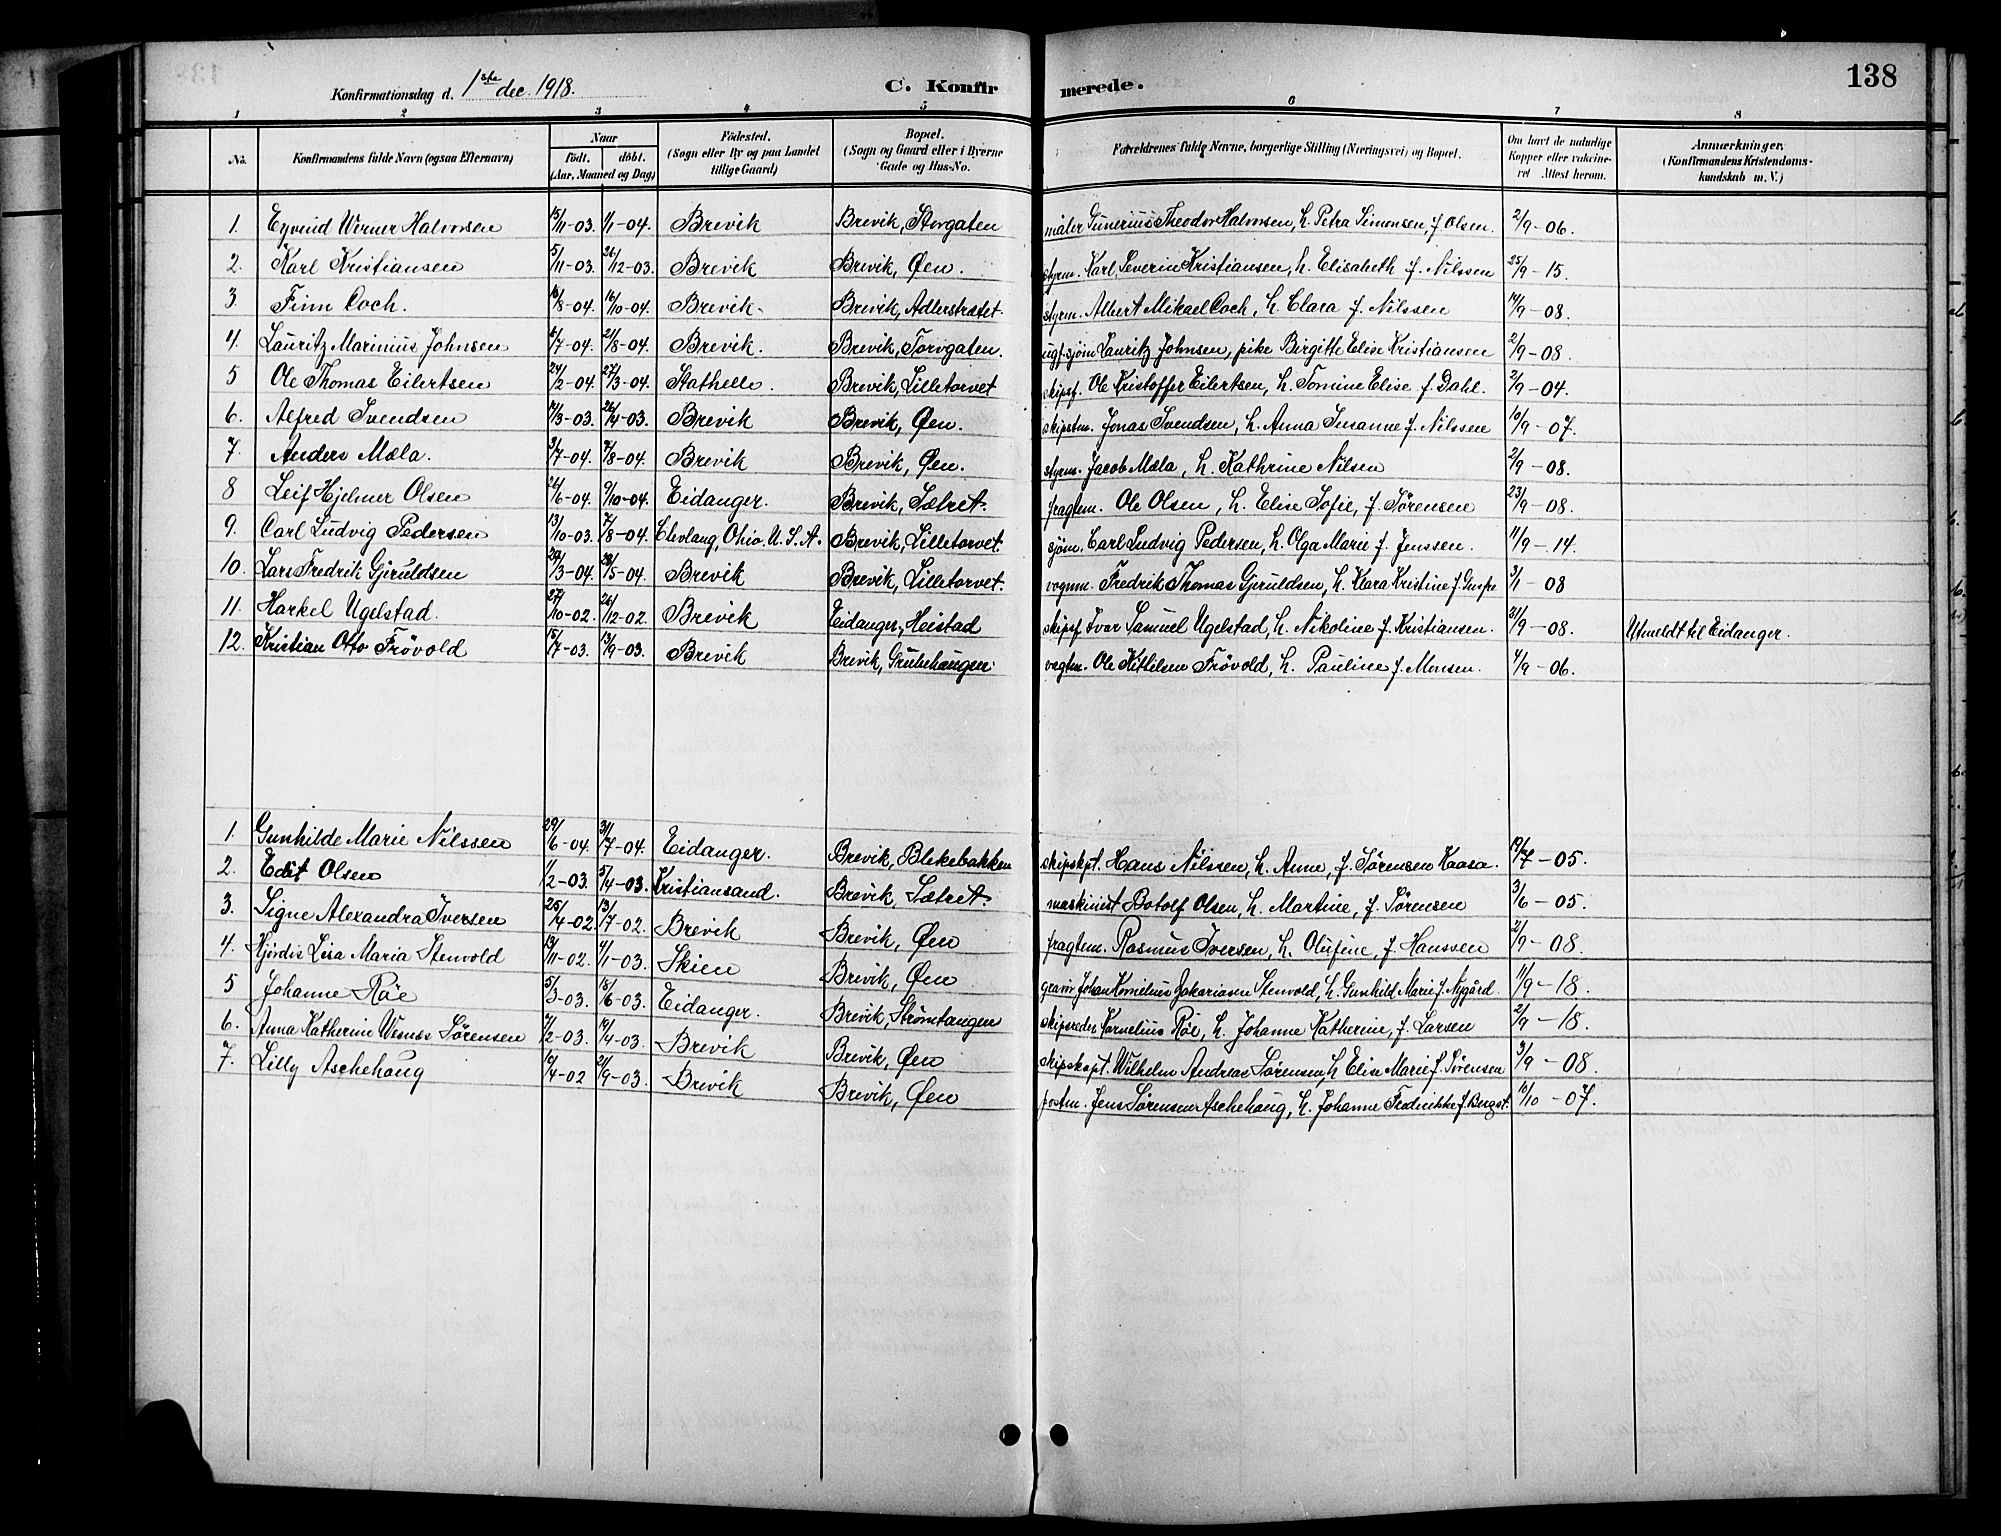 138
Konfirmationsdag d. 1ste dec. 1918. C. Konfir merede.
1 2 3 4 5 6 7 8
No. Konfirmandens fulde Navn (ogsaa Efternavn) Naar født. døbt. (Aar, Maaned og Dag) Fødested. (Sogn eller By og paa Landet tillige Gaard) Bopæl. (Sogn og Gaard eller i Byerne Gade og Hus-No. Forældrenes fulde Navne, borgerlige Stilling (Næringsvei) og Bopæl. Om havt de naturlige Kopper eller vakcineret Attest herom. Anmærkninger. (Konfirmandens Kristendomskundskab m. V.)
1. Eyvind Werner Halvorsen 15/11-03. 1/1-04. Brevik Brevik, Storgaten maler Gunerius Theodor Halvorsen, h. Petra Simonsen, f. Olsen. 2/9-06.
2. Karl Kristiansen 5/11-03. 26/12-03. Brevik Brevik, Øen. styrm. Karl Severin Kristiansen, h. Elisabeth f. Nilssen 25/9-15.
3. Finn Coch. /8-04. 16/10-04. Brevik. Brevik, Adlerstrædet. styrm. Albert Mikael Coch, h. Clara f. Nilssen 14/9-08.
4. Lauritz Marinius Johnsen /7-04. 21/8-04. Brevik. Brevik, Torvgaten. ugf. sjøm Lauritz Johnsen, pike Birgitte Elise Kristiansen 2/9-08.
5 Ole Thomas Eilertsen 24/2-04. 27/3-04. Stathelle. Brevik, Lilletorvet skipsf. Ole Kristoffer Eilertsen, h. Tomine Elise f. Dahl. 2/9-04.
6. Alfred Svendsen /3-03. 26/4-03. Brevik Brevik, Øen. skipstm. Jonas Svendsen, h. Anna Susanne f. Nilssen 10/9-07.
7. Anders Mæla. /7-04. 7/8-04. Brevik Brevik, Øen. styrm. Jacob Mæla, h. Kathrine Nilsen 2/9-08.
8 Leif Hjelmer Olsen 26/6-04. 9/10-04. Eidanger. Brevik, Sætret. fragtm. Ole Olsen, h. Elise Sofie, f. Sørensen 23/9-08.
9. Carl Ludvig Pedersen 13/10-03. 7/8-04. Clevlang, Ohio. U.S.A. Brevik, Lilletorvet. sjøm. Carl Ludvig Pedersen, h. Olga Marie f. Jenssen. 11/9-14.
10. Lars Fredrik Gjeruldsen 29/3-04. 29/5-04. Brevik Brevik, Lilletorvet. vognm. Fredrik Thomas Gjeruldsen, h. Klara Kristine f. 3/1-08
11. Harkel Ugelstad. 27/10-02. 26/12-02. Brevik Eidanger, Heistad skipsf Ivar Samuel Ugelstad, h. Nikoline f. Kristiansen. 31/9-08. Utmeldt til Eidanger.
12. Kristian Otto Frövold 15/7-03. 13/9-03. Brevik Brevik, Grubehaugen. vagtm. Ole Kittilsen Frövold, h. Pauline f. Monsen. 4/9-06.
1. Gunhilde Marie Nilssen 29/6-04. 31/7-04. Eidanger. Brevik, Blekebakken skipskpt. Hans Nilssen, h. Anne, f. Sørensen Kaasa. 19/7-05.
2. Edit Olsen 1/2-03. 5/4-03. Kristiansand. Brevik, Sætret. maskinist Botolf Olsen, h. Martine, f. Sørensen 3/6-05.
3. Signe Alexandra Iversen 25/4-02. 13/7-02. Brevik Brevik, Øen fragtm. Rasmus Iversen, h. Olufine, f. Hanssen 2/9-08.
4. Hjördis Lisa Maria Stenvold 19/11-02. 4/1-03. Skien Brevik, Øen gravör Johan Kornelius Zakariasen Stenvold, h. Gunhild Marie f. Nygård. 11/9-18.
5 Johanne Røe 5/3-03. 18/6-03. Eidanger. Brevik, Strømtangen skipsreder Kornelius Røe, h. Johanne Katherine, f. Larsen 2/9-18.
6. Anna Katherine Sørensen /2-03. /4-03. Brevik Brevik, Øen skipskapt. Wilhelm Andreas Sørensen, h Elise Marie f. Sørensen 3/9-08.
7. Lilly Aschehaug /4-02 21/9-03. Brevik Brevik, Øen postm. Jens Sørensen Aschehaug, h. Johanne Fredrikke f. Bergst. 11/10-07.